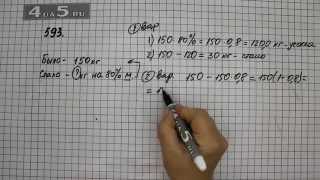 4DA5.RU
593.
① вар
1) 150·80% = 150·0,8 = 120,0 кг - усохло
2) 150 - 120 = 30 кг - стало
Было - 150 кг
Стало - ? кг на 80% м.
② вар. 150 - 150·0,8 = 150(1-0,8)=
=